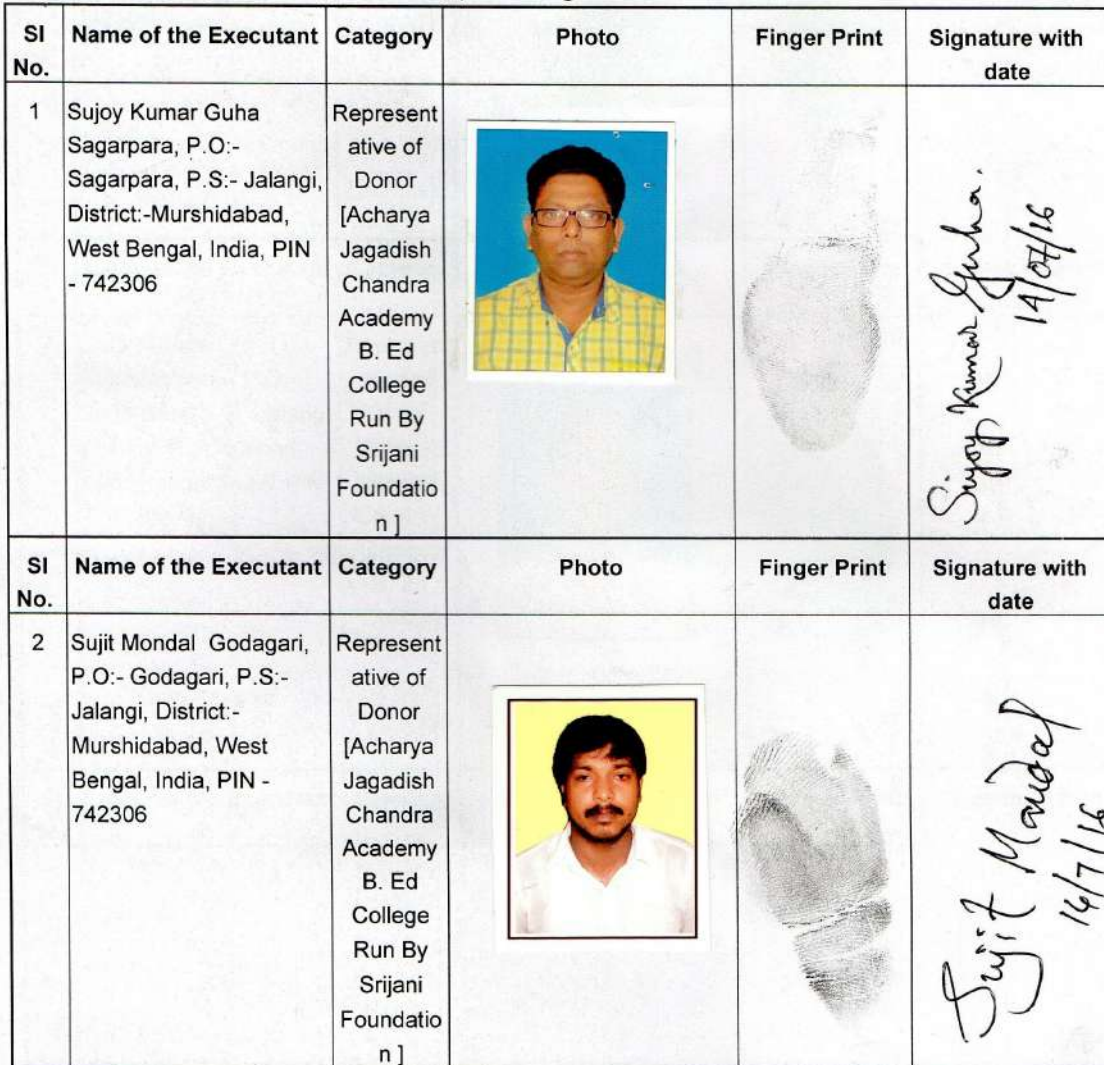 SI No. Name of the Executant Category Photo Finger Print Signature with date
1
Sujoy Kumar Guha
Sagarpara, P.O:-
Sagarpara, P.S:- Jalangi,
District:-Murshidabad,
West Bengal, India, PIN
- 742306
Represent
ative of
Donor
[Acharya
Jagadish
Chandra
Academy
B. Ed
College
Run By
Srijani
Foundatio
n ]
Sujoy Kumar Guha.
14/07/16
SI No. Name of the Executant Category Photo Finger Print Signature with date
2
Sujit Mondal Godagari,
P.O:- Godagari, P.S:-
Jalangi, District:-
Murshidabad, West
Bengal, India, PIN -
742306
Represent
ative of
Donor
[Acharya
Jagadish
Chandra
Academy
B. Ed
College
Run By
Srijani
Foundatio
n ]
Sujit Mondal
14/7/16